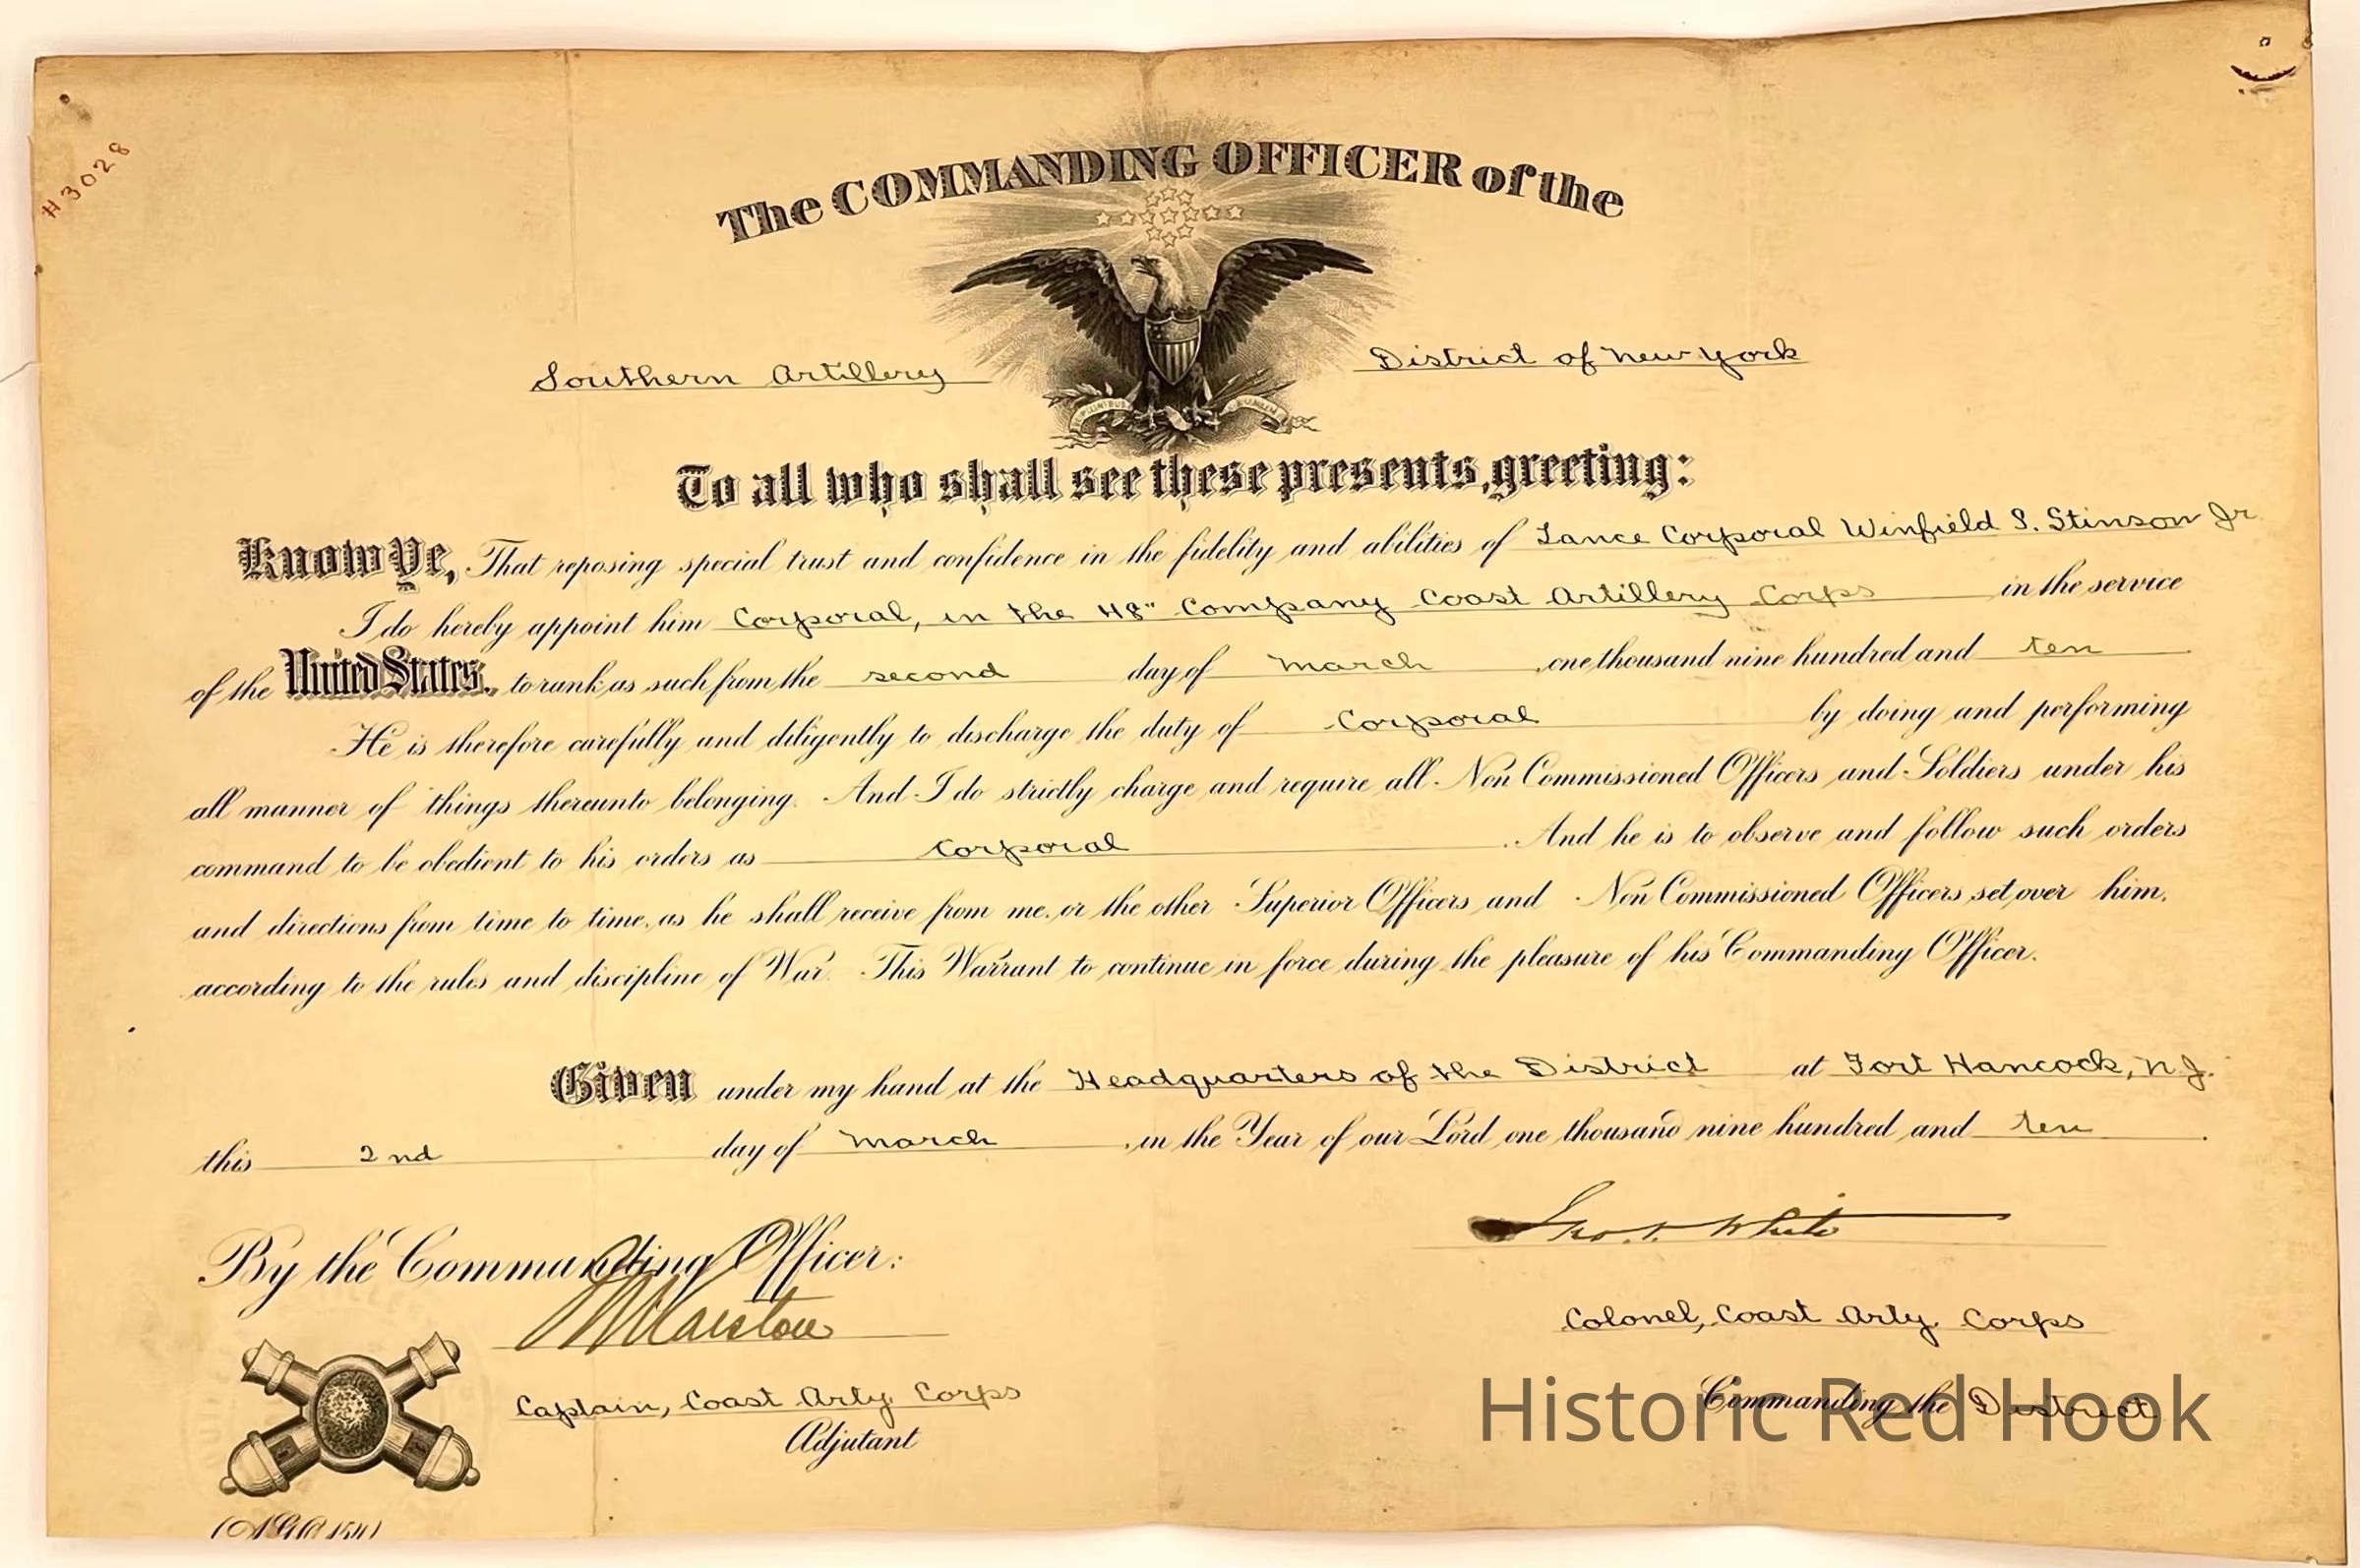 H3028
The COMMANDING OFFICER of the
Southern Artillery District of New York
To all who shall see these presents, greeting:
Know Ye, That reposing special trust and confidence in the fidelity and abilities of Lance Corporal Winfield S. Stinson Jr.
I do hereby appoint him Corporal, in the 48" Company Coast Artillery Corps in the service
of the United States, to rank as such from the second day of March one thousand nine hundred and ten
He is therefore carefully and diligently to discharge the duty of Corporal by doing and performing
all manner of things thereunto belonging. And I do strictly charge and require all Non Commissioned Officers and Soldiers under his
command to be obedient to his orders as Corporal. And he is to observe and follow such orders
and directions from time to time, as he shall receive from me, or the other Superior Officers and Non Commissioned Officers set over him,
according to the rules and discipline of War. This Warrant to continue in force during the pleasure of his Commanding Officer.
Given under my hand at the Headquarters of the District at Fort Hancock, N.J.
this 2nd day of March, in the Year of our Lord one thousand nine hundred and ten.
By the Commanding Officer:
White
Marston
Colonel, Coast Arty. Corps
Captain, Coast Arty. Corps
Commanding the District
Adjutant
Historic Red Hook